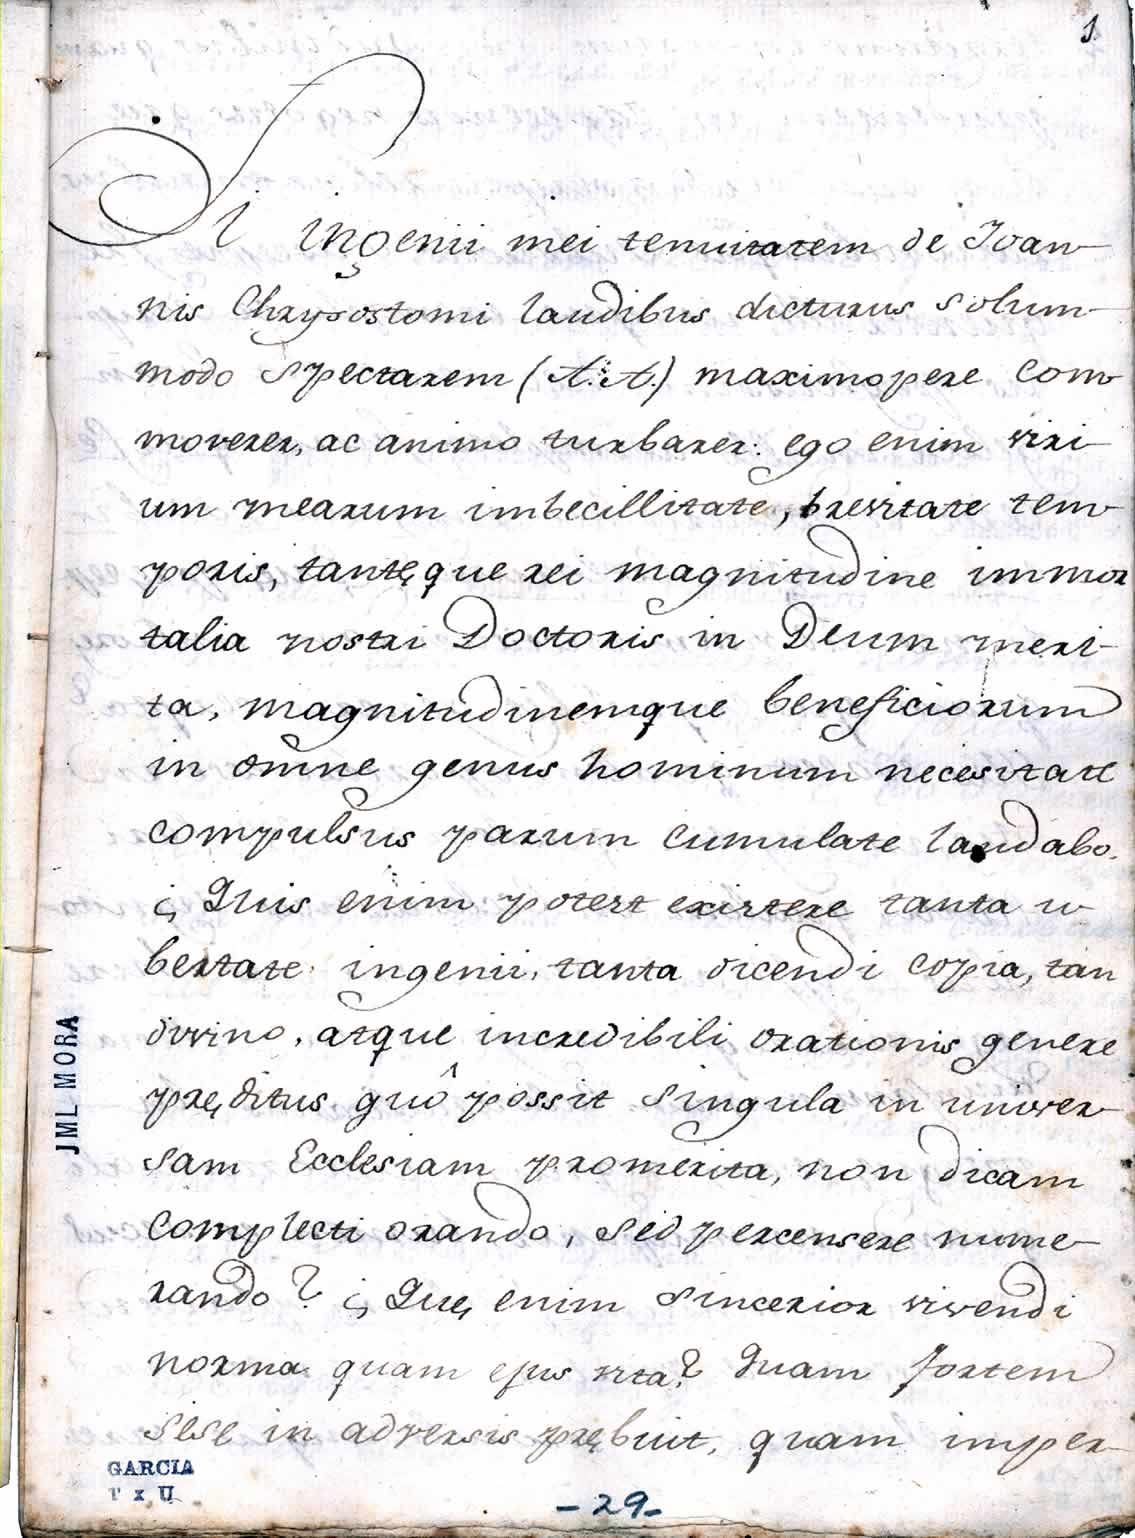 1
Si ingenii mei tenuitatem de Joan-
nis Chrysostomi laudibus dicturus solum-
modo spectarem (A. A.) maximopere com-
moverer, ac animo turbarer: ego enim viri-
um mearum imbecillitate, brevitate tem-
poris, tantęque rei magnitudine immor
talia nostri Doctoris in Deum meri-
ta, magnitudinemque beneficiorum
in omne genus hominum necesitate
compulsus parum cumulate laudabo.
¿ Quis enim potest existere tanta u-
bertate ingenii, tanta dicendi copia, tan
divino, atque incredibili orationis genere
pręditus quô possit singula in univer-
sam Ecclesiam promerita, non dicam
complecti orando, sed percensere nume-
rando? ¿ Quę enim sincerior vivendi
norma quam ejus vita? Quam fortem
sese in adversis prębuit, quam imper-
JML MORA
GARCIA
T x U
-29-